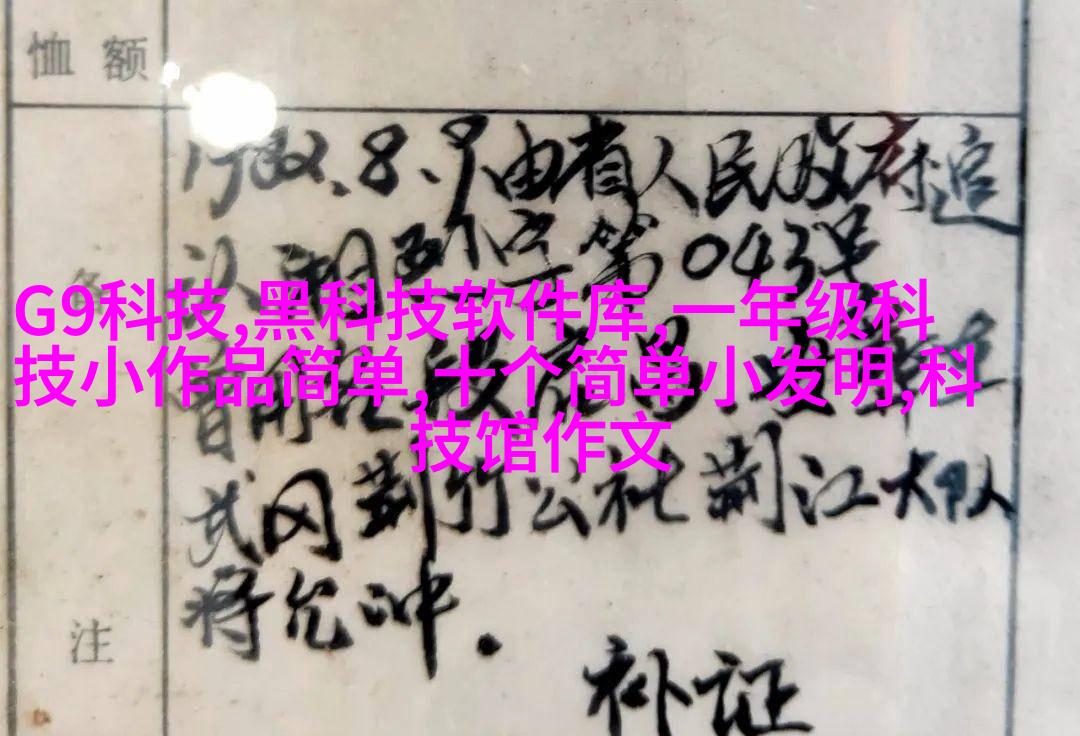 恤额
1982.8.9由省人民政府追
认,湘烈字第043号
G9科技,黑科技软件库,一年级科
技小作品简单,十个简单小发明,科
技馆作文
备
武冈荆竹公社荆江大队
将允冲.
注
补证